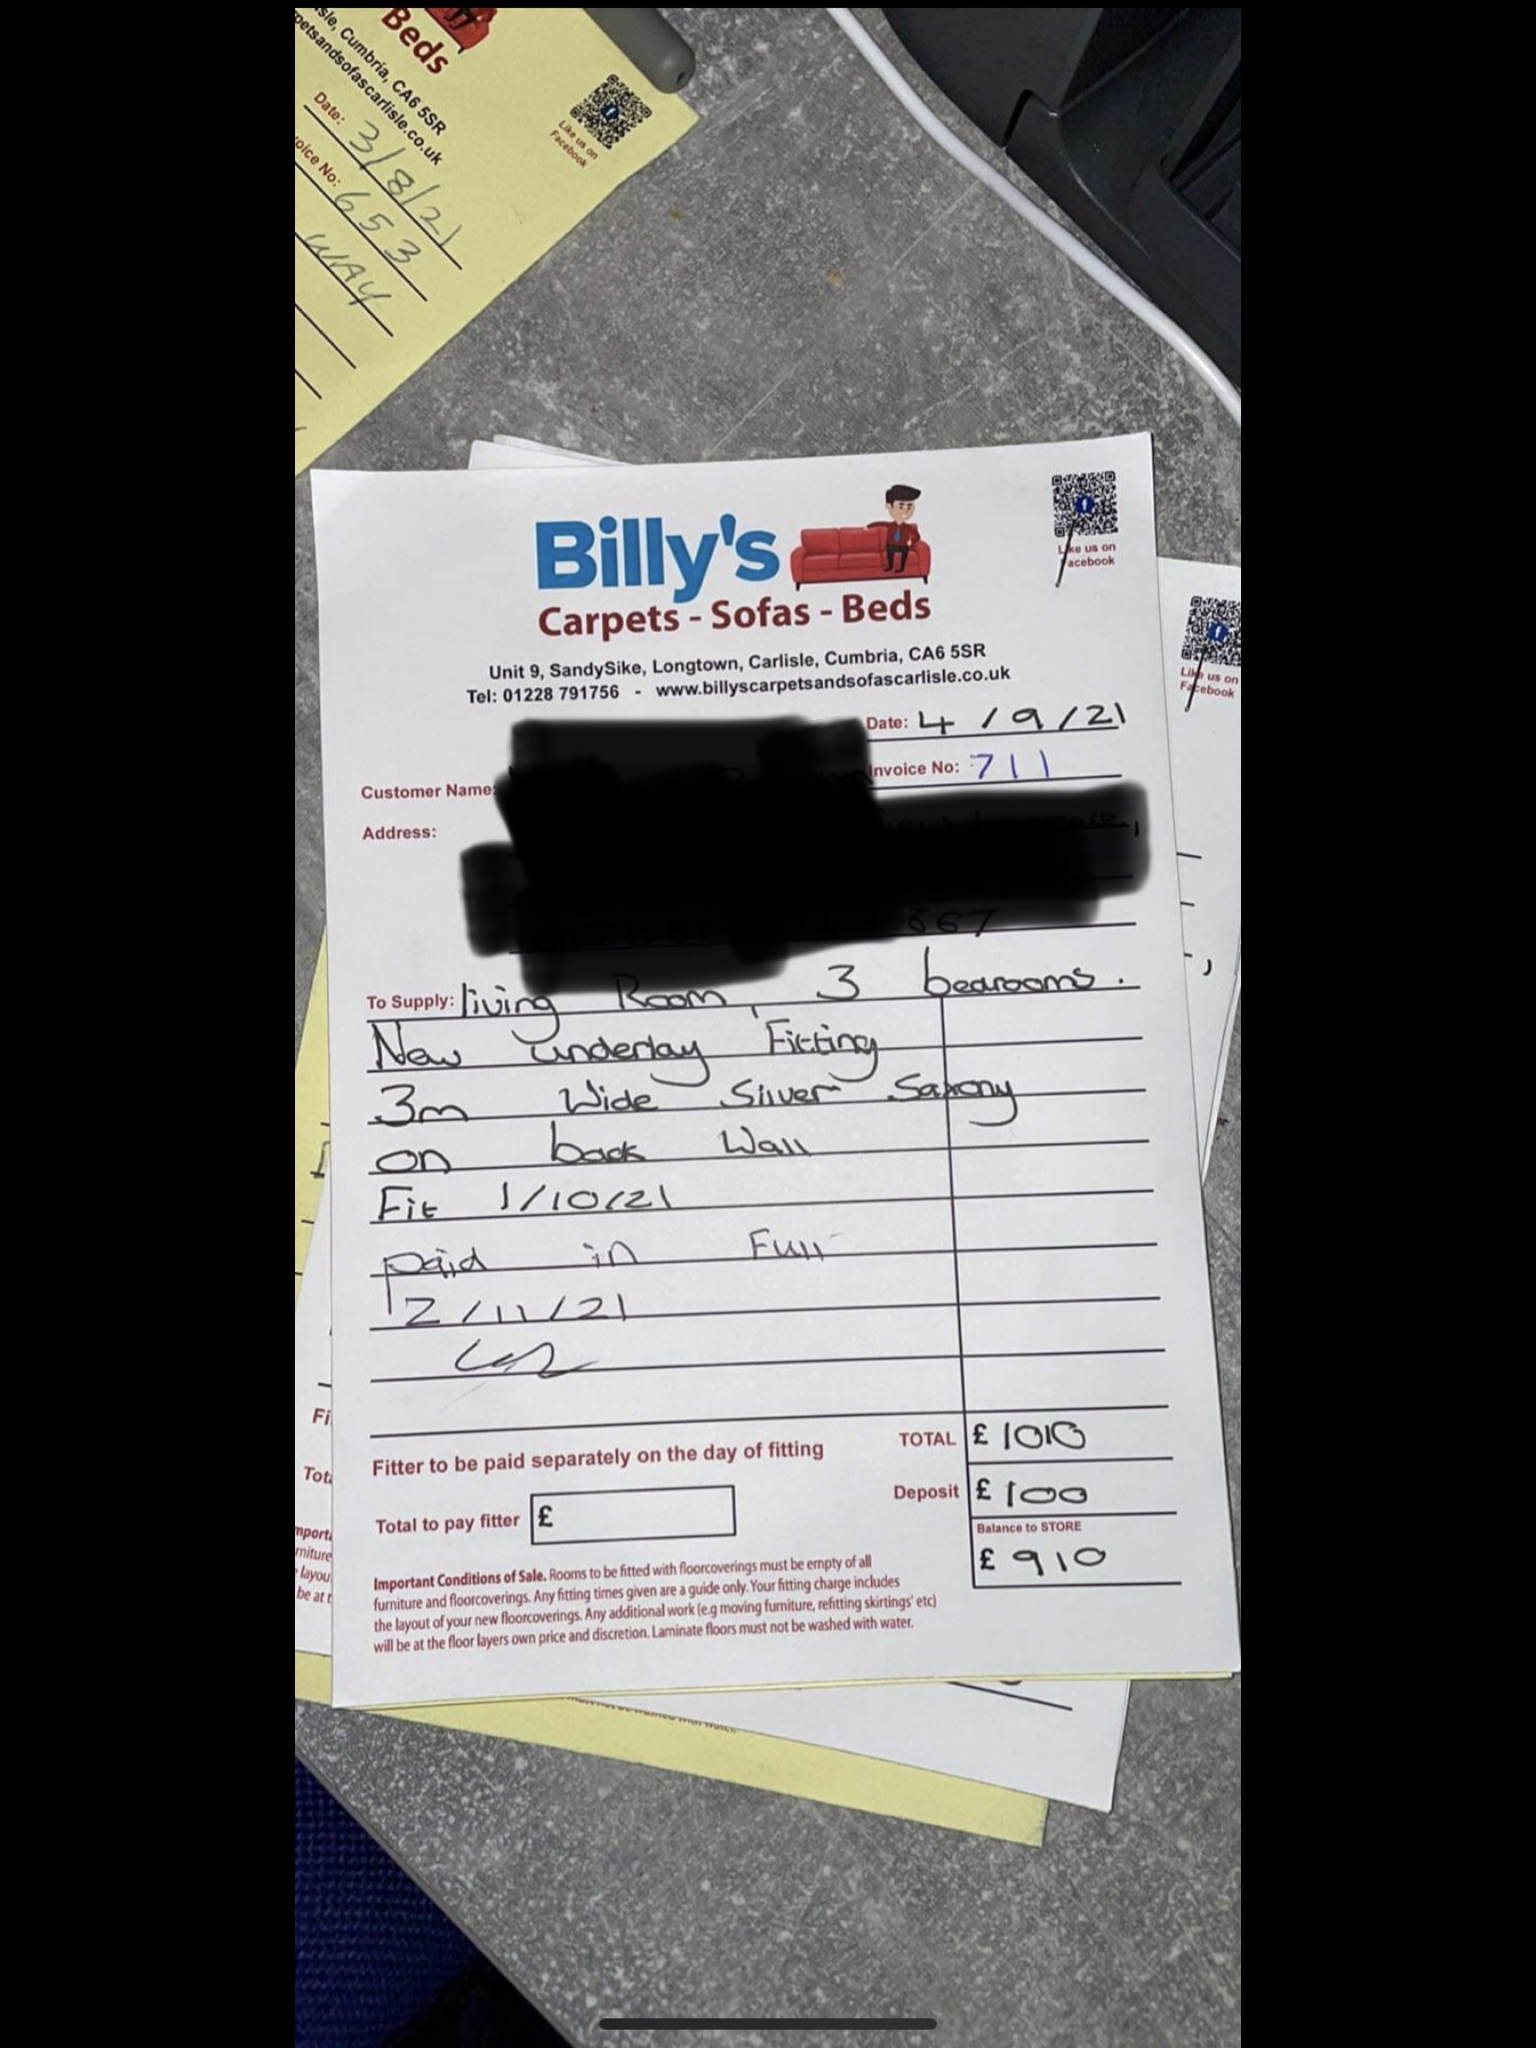 Beds
sle, Cumbria, CA6 5SR
petsandsofascarlisle.co.uk
Like us on
Facebook
Date: 3/8/21
oice No: 653
WAY
Billy's
Carpets - Sofas - Beds
Like us on
Facebook
Unit 9, SandySike, Longtown, Carlisle, Cumbria, CA6 5SR
Tel: 01228 791756 - www.billyscarpetsandsofascarlisle.co.uk
Like us on
Facebook
Date: 4/9/21
Invoice No: 711
Customer Name:
Address:
To Supply: living Room, 3 bearooms.
New underlay Fitting
3m Wide Silver Saxony
on back Wall
Fit 1/10/21
paid in Full
12/11/21
Fitter to be paid separately on the day of fitting
TOTAL £ 1010
Deposit £ 100
Total to pay fitter £
Balance to STORE
£ 910
Important Conditions of Sale. Rooms to be fitted with floorcoverings must be empty of all
furniture and floorcoverings. Any fitting times given are a guide only. Your fitting charge includes
the layout of your new floorcoverings. Any additional work (e.g moving furniture, refitting skirtings' etc)
will be at the floor layers own price and discretion. Laminate floors must not be washed with water.
Fi
Tota
mporta
rniture
layou
be at t